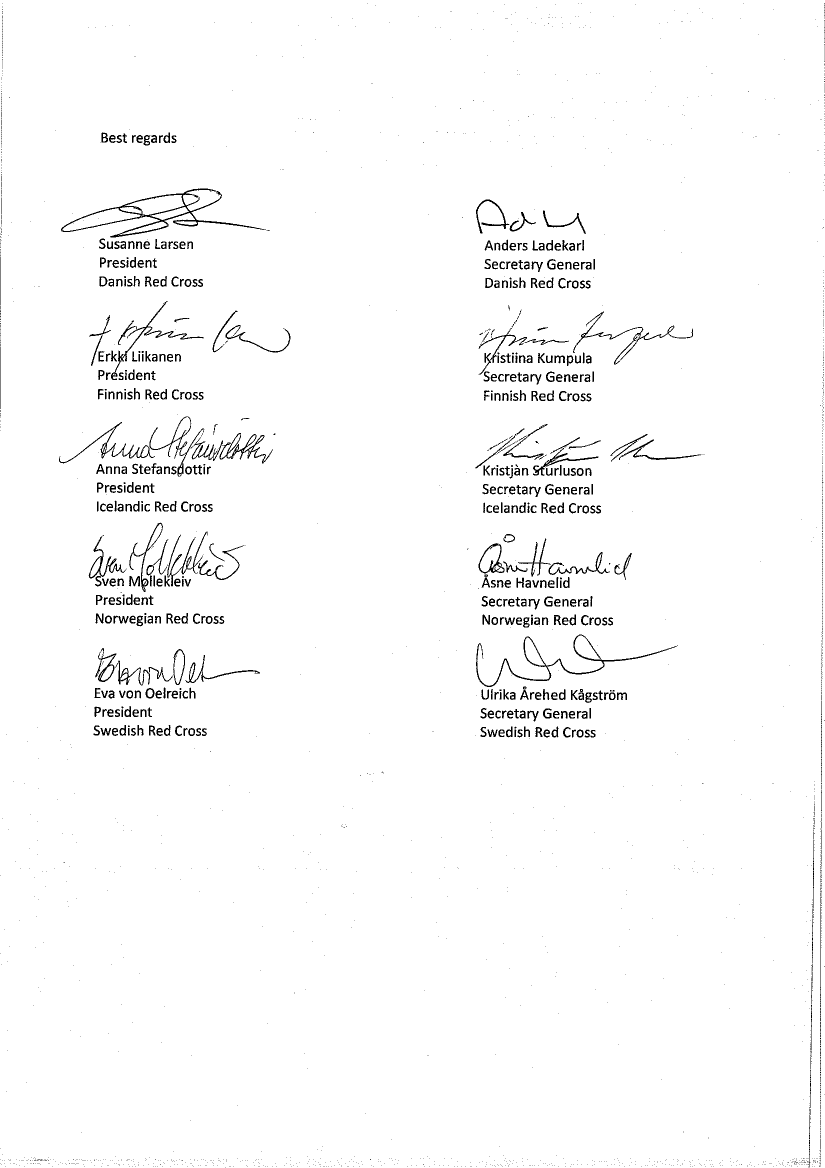 Best regards
Susanne Larsen
President
Danish Red Cross
Anders Ladekarl
Secretary General
Danish Red Cross
Erkki Liikanen
President
Finnish Red Cross
Kristiina Kumpula
Secretary General
Finnish Red Cross
Anna Stefansdottir
President
Icelandic Red Cross
Kristjàn Sturluson
Secretary General
Icelandic Red Cross
Sven Mollekleiv
President
Norwegian Red Cross
Åsne Havnelid
Åsne Havnelid
Secretary General
Norwegian Red Cross
Eva von Oelreich
President
Swedish Red Cross
Ulrika Årehed Kågström
Secretary General
Swedish Red Cross